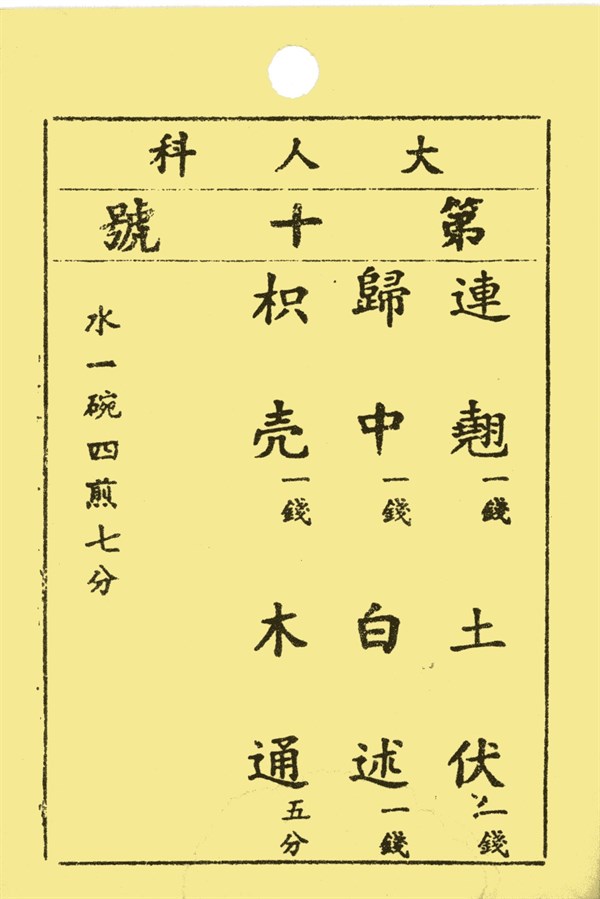 大人科
第十號
連翹一錢 土伏二錢
歸中一錢 白述一錢
枳壳一錢 木通五分
水一碗四煎七分